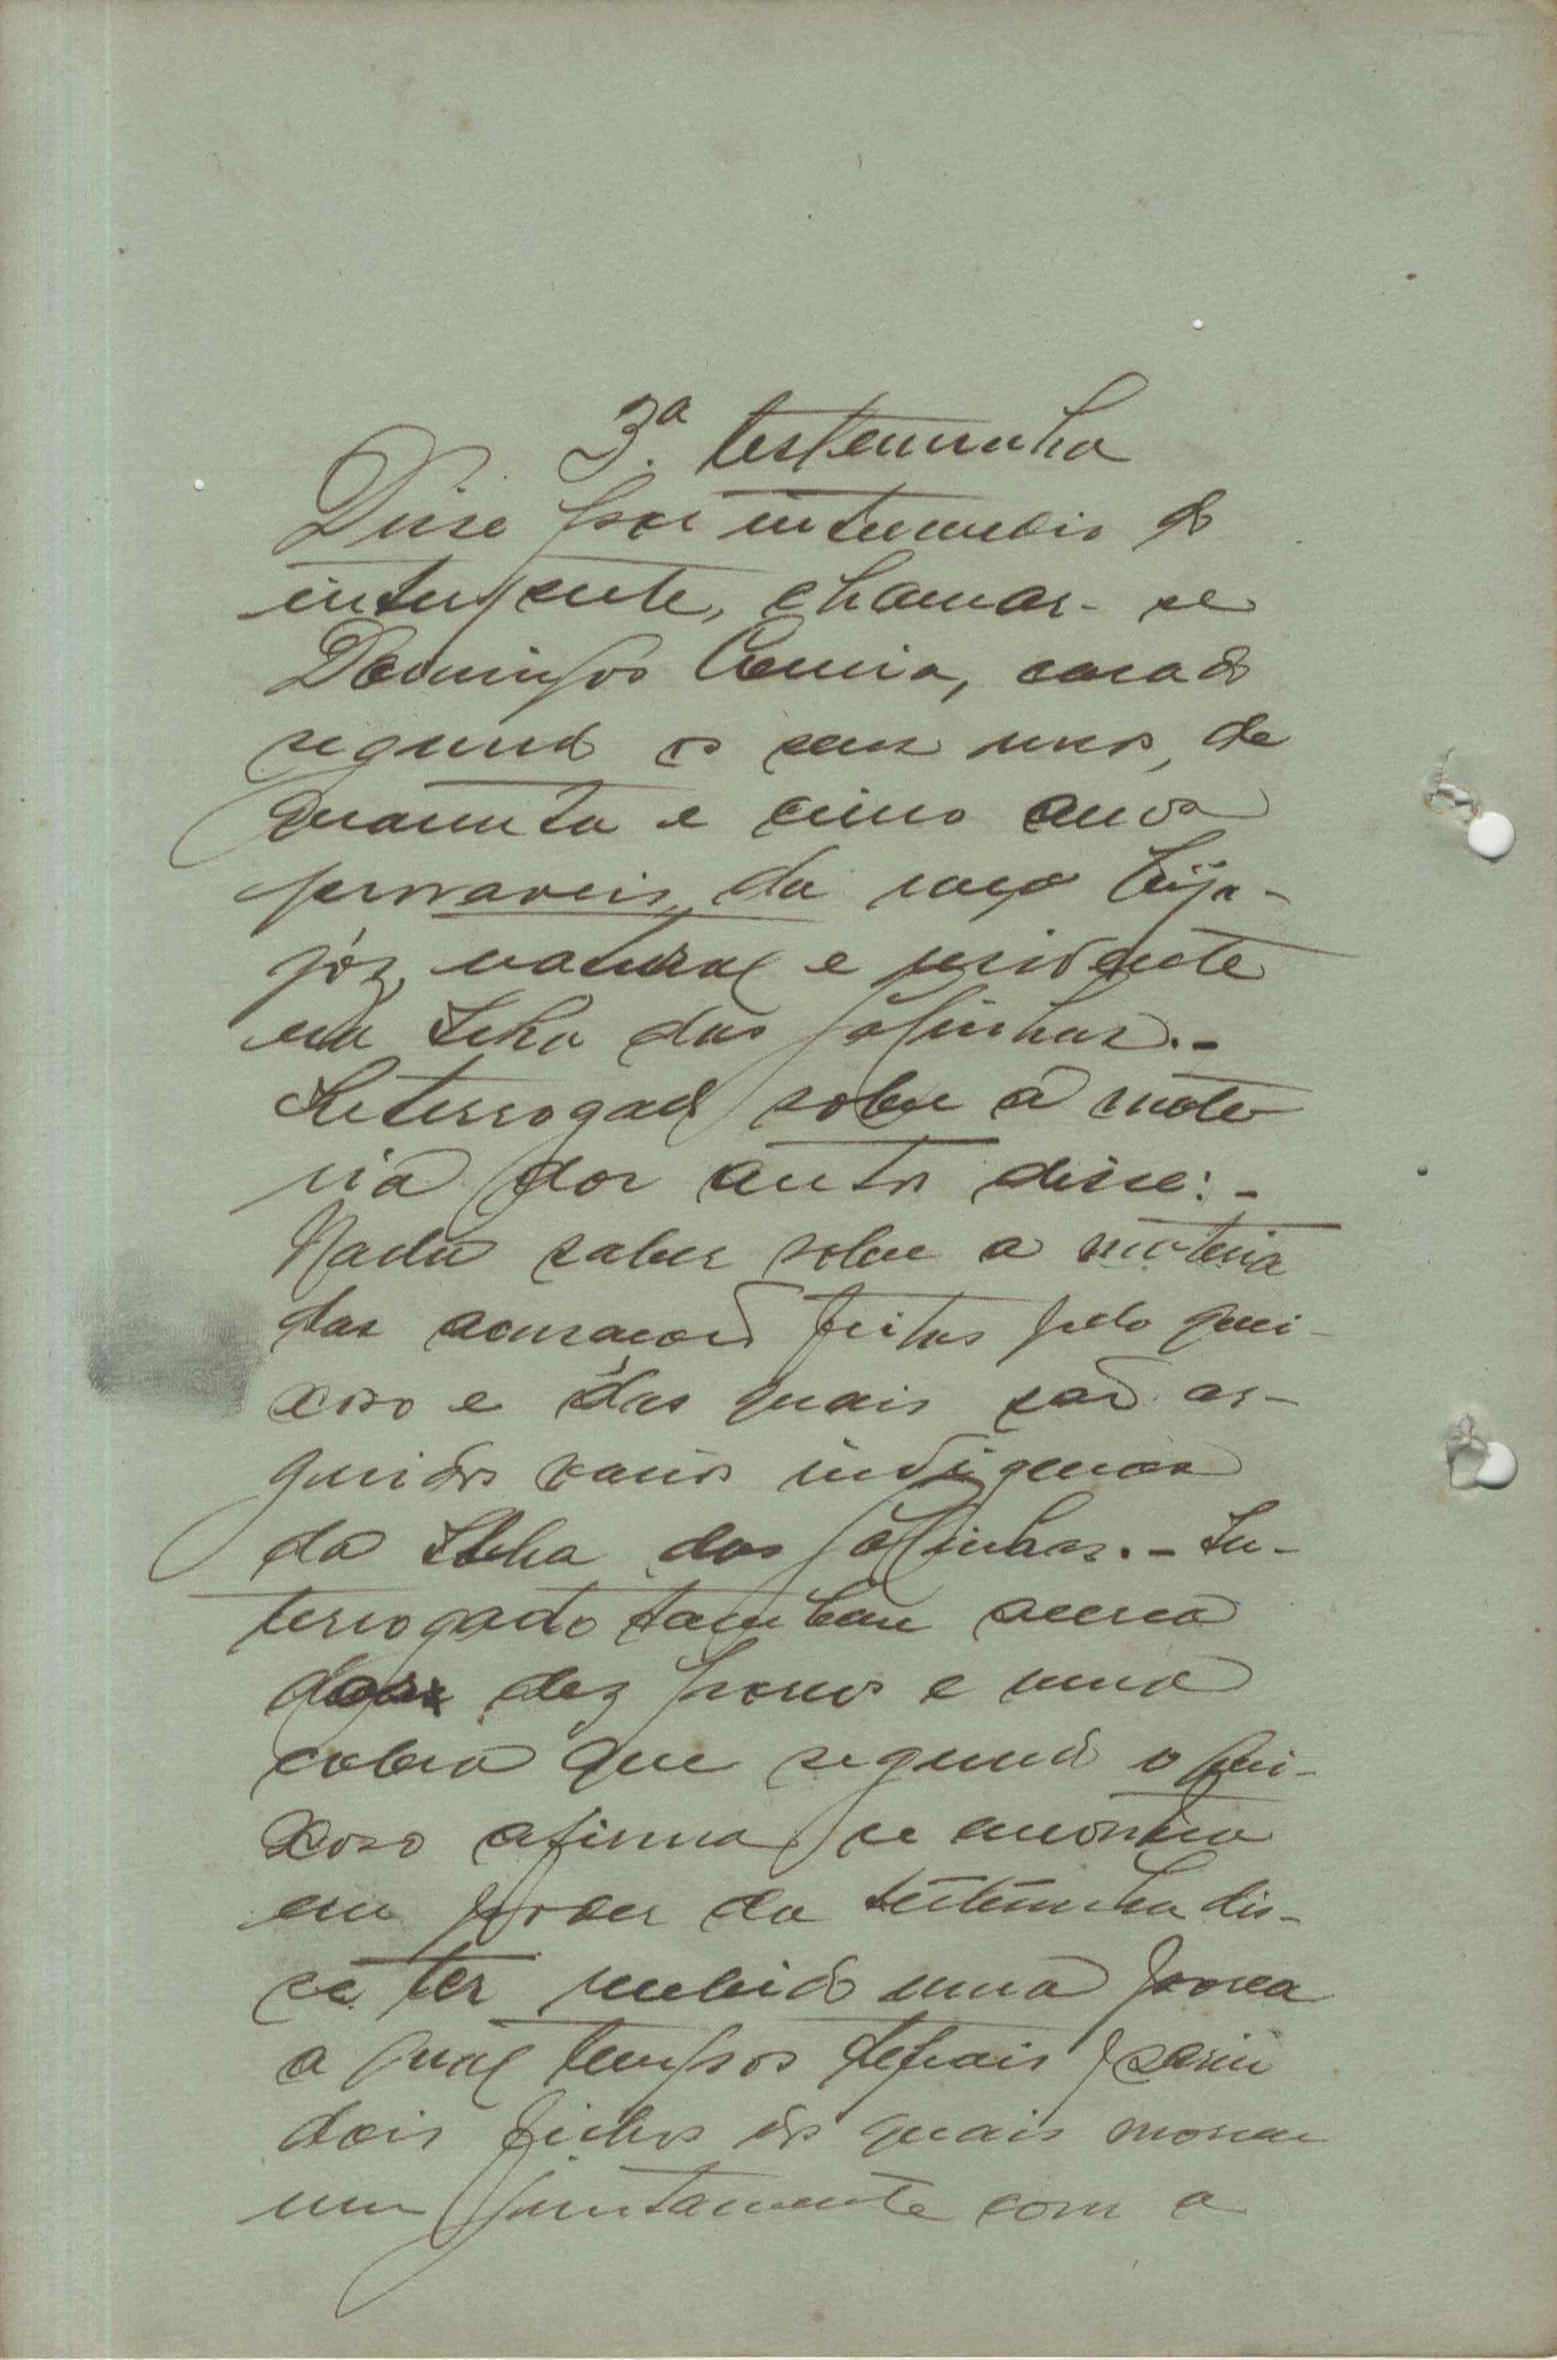 3.ª testemunha
Disse por intermedio do
interprete, chamar-se
Domingos Correia, casado
segundo os seus usos, de
quarenta e cinco anos
provaveis, da raça bija-
góz, natural e residente
na Ilha das Galinhas.-
Interrogado sobre a mate
ria dos autos disse:-
Nada saber sobre a materia
das acusações feitas pelo quei-
xoso e das quais são ar-
guidos varios indigenas
da Ilha das Galinhas.- In-
terrogado tambem acerca
dos dez porcos e uma
cabra que segundo o quei-
xoso afirma se encontra
em poder da testemunha dis-
se ter recebido uma porca
a qual tempos depois pariu
dois filhos dos quais morreu
um juntamente com a